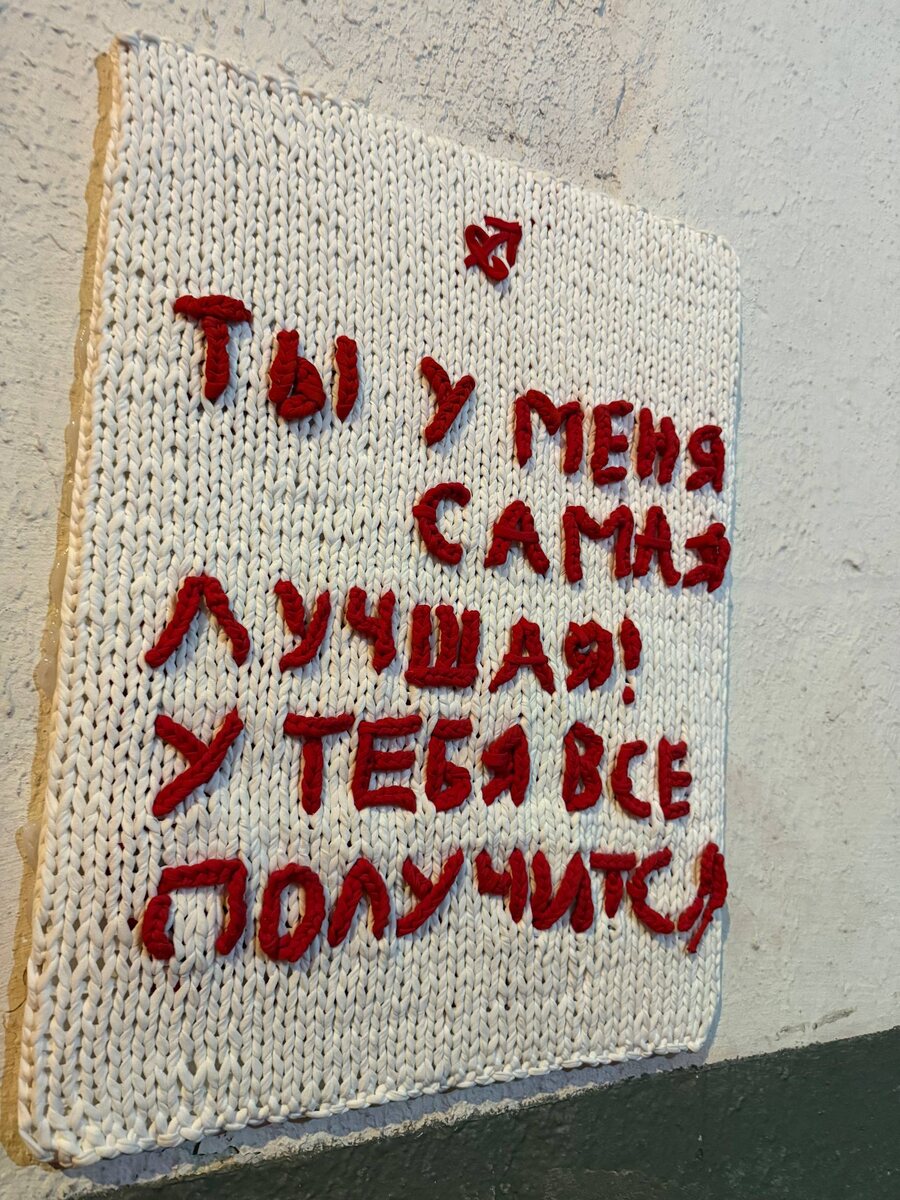 ТЫ У МЕНЯ
САМАЯ
ЛУЧШАЯ!
У ТЕБЯ ВСЕ
ПОЛУЧИТСЯ